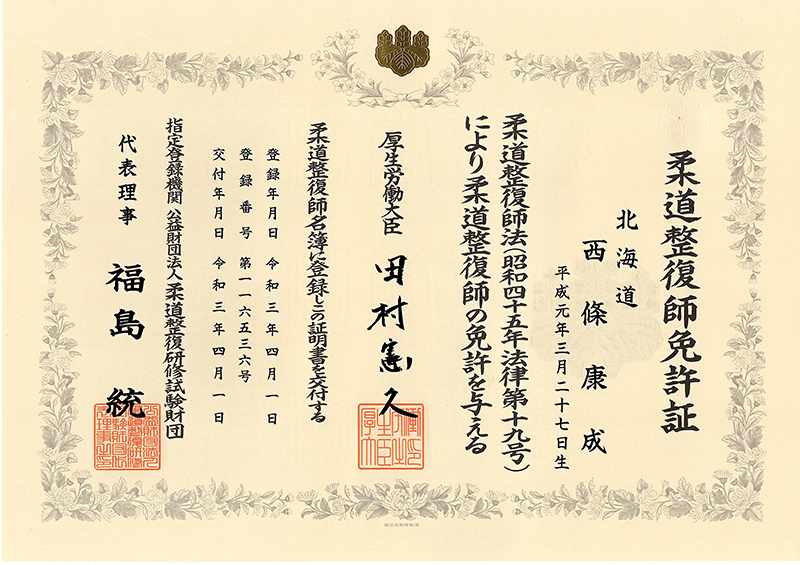 柔道整復師免許証
北海道
西條康成
平成元年三月二十七日生
柔道整復師法（昭和四十五年法律第十九号）
により柔道整復師の免許を与える
厚生労働大臣 田村憲久
柔道整復師名簿に登録しこの証明書を交付する
登録年月日 令和三年四月一日
登録番号 第一一六五三六号
交付年月日 令和三年四月一日
指定登録機関 公益財団法人柔道整復研修試験財団
代表理事 福島統